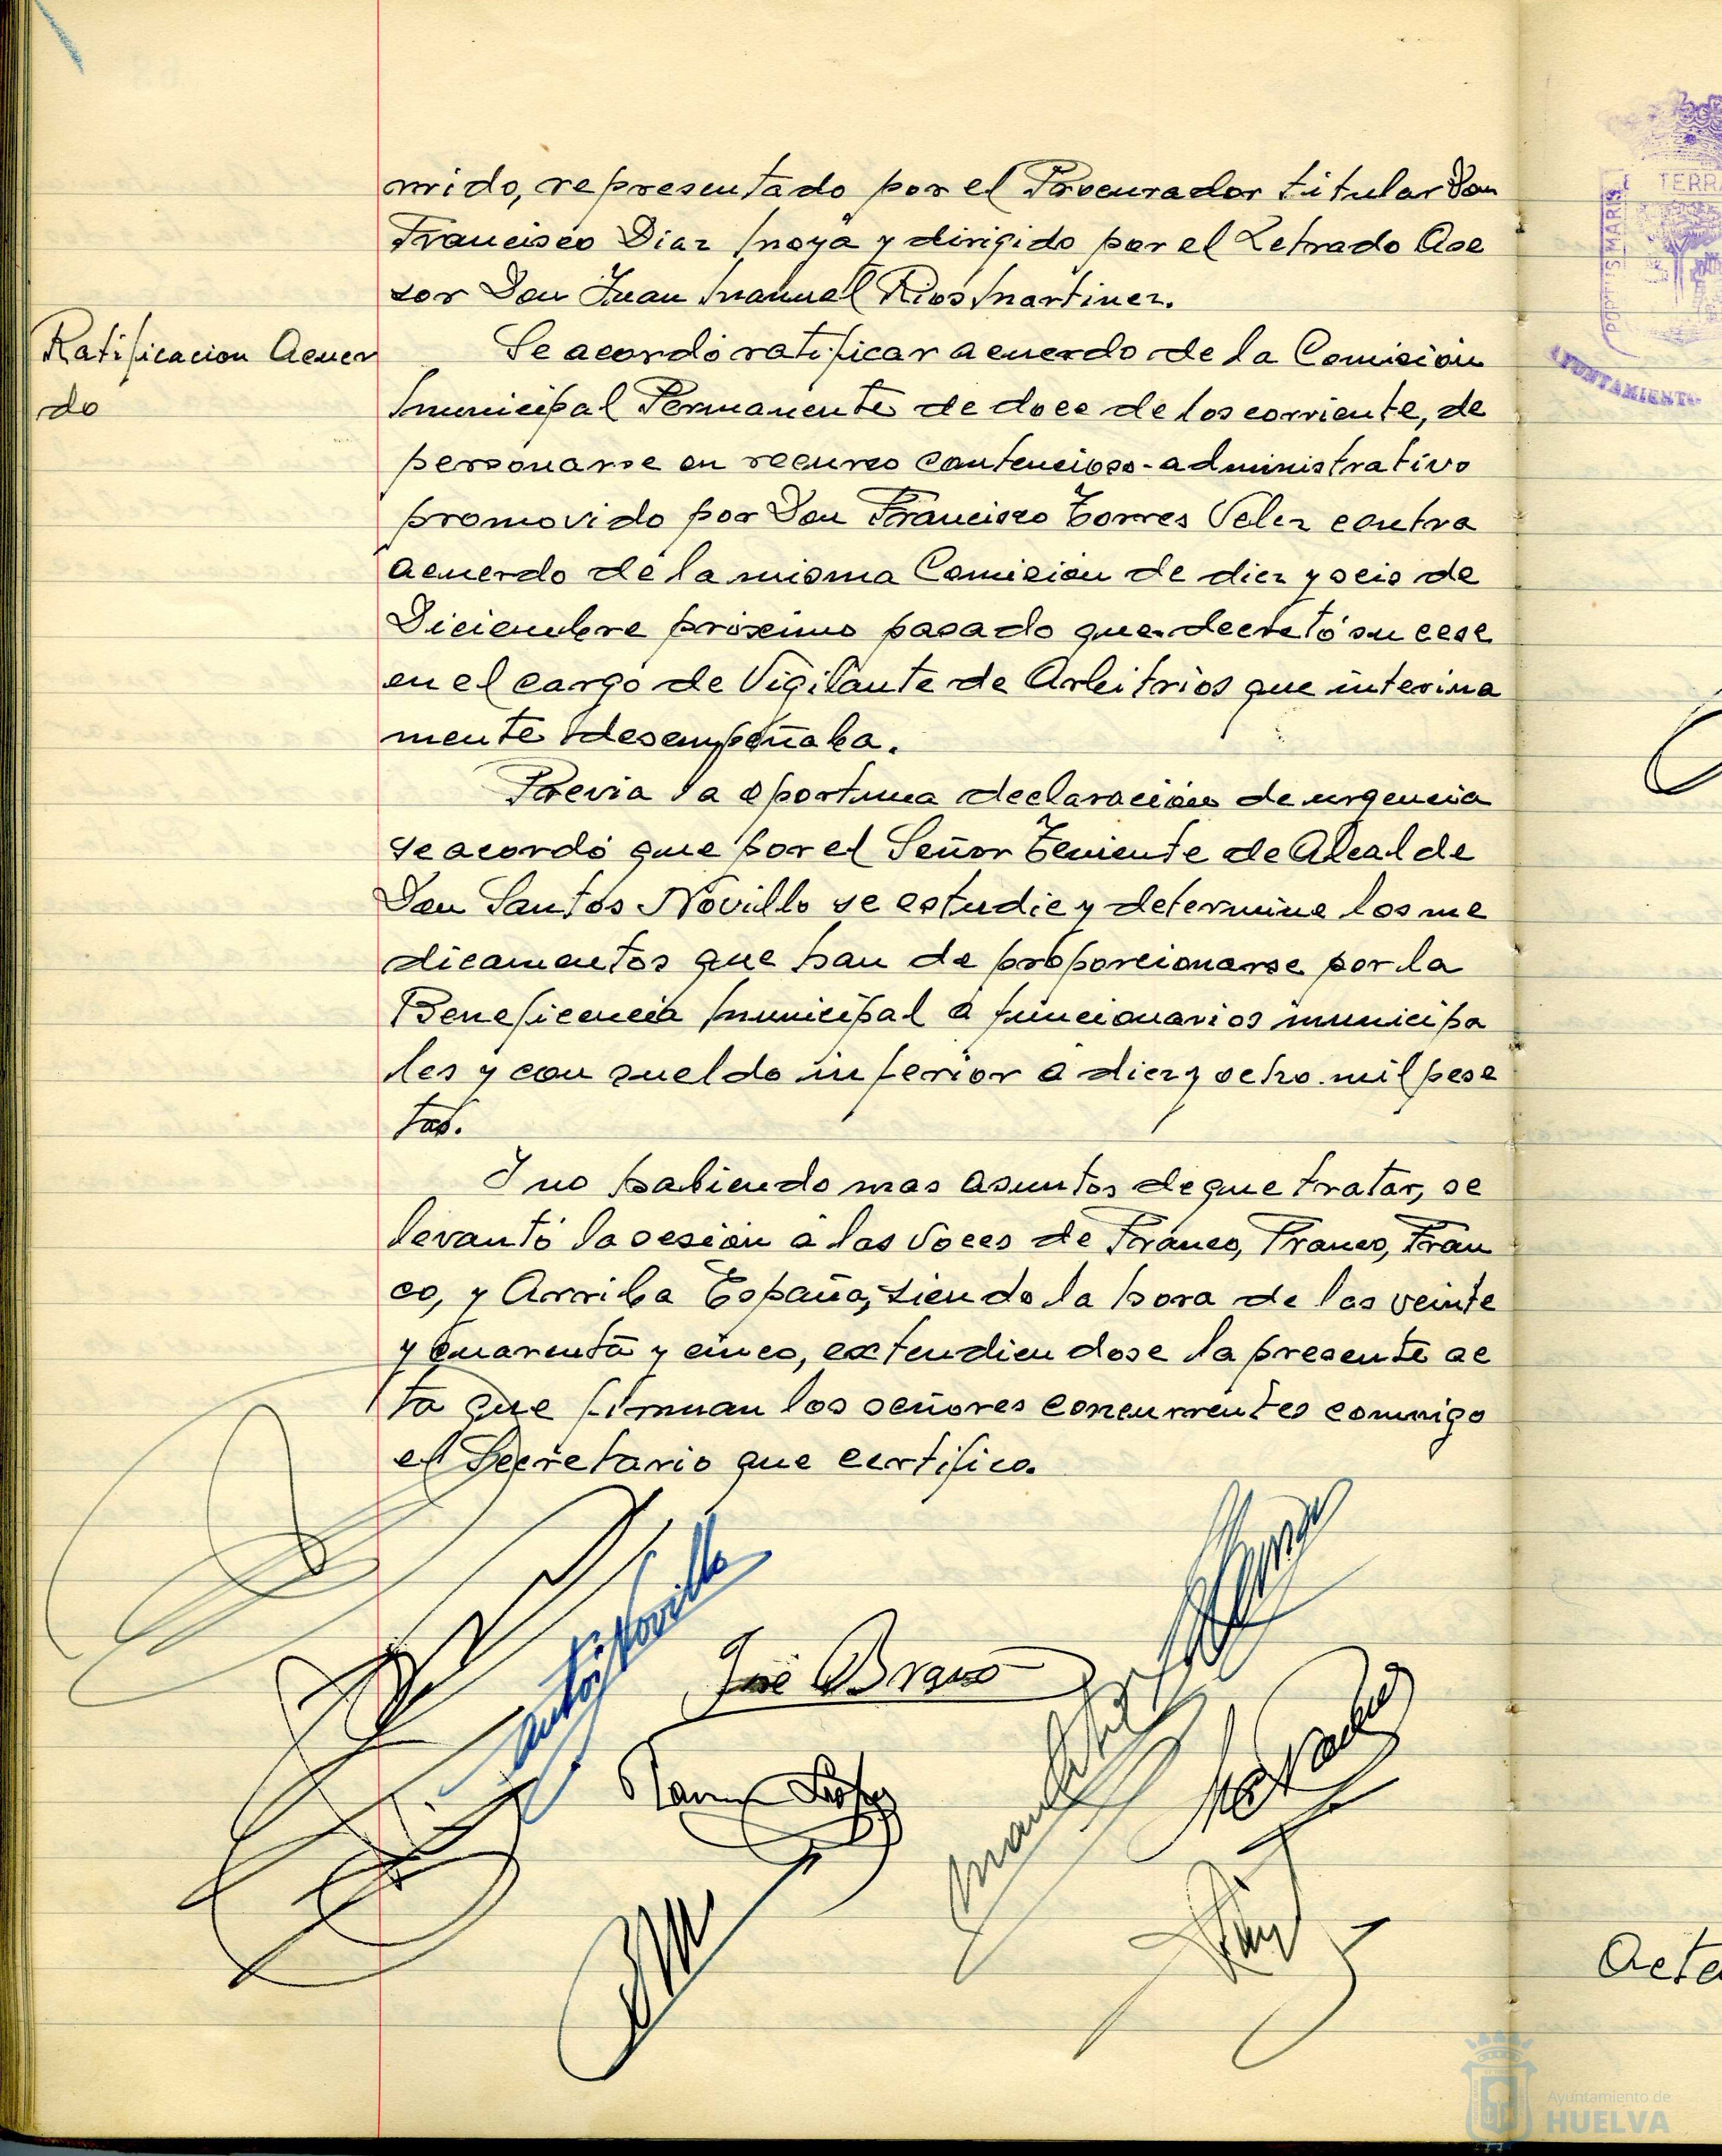 rrido, representado por el Procurador titular Don
Francisco Diaz Moya y dirigido por el Letrado Ase
sor Don Juan Manuel Rios Martinez.
Ratificacion Acuer
do
Se acordó ratificar acuerdo de la Comisión
Municipal Permanente de doce de los corriente, de
personarse en recurso contencioso-administrativo
promovido por Don Francisco Torres Velez contra
acuerdo de la misma Comision de diez y seis de
Diciembre próximo pasado que decretó su cese
en el cargo de Vigilante de Arbitrios que interina
mente desempeñaba.
Previa la oportuna declaración de urgencia
se acordó que por el Señor Teniente de Alcalde
Don Santos Novillo se estudie y determine los me
dicamentos que han de proporcionarse por la
Beneficencia Municipal a funcionarios municipa
les y con sueldo inferior a diez y ocho mil pese
tas.
Y no habiendo mas asuntos de que tratar, se
levantó la sesión a las voces de Franco, Franco, Fran
co, y Arriba España, siendo la hora de las veinte
y cuarenta y cinco, extendiendose la presente ac
ta que firman los señores concurrentes conmigo
el Secretario que certifico.
Santos Novillo
José Bravo
Ramon Lopez
TERRA
PORTUS MARIS
AYUNTAMIENTO
Acta
Ayuntamiento de
HUELVA